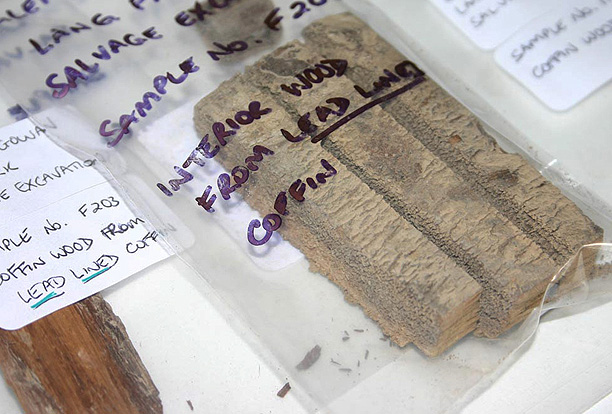 LANG
SALVAGE EXCAV
SAMPLE NO. F20
INTERIOR WOOD
FROM LEAD LINED
COFFIN
GOWAN
RK
E EXCAVATION
MPLE NO. F203
COFFIN WOOD FROM
LEAD LINED COFFIN
SALVA
SAMPLE NO.
COFFIN WOOD